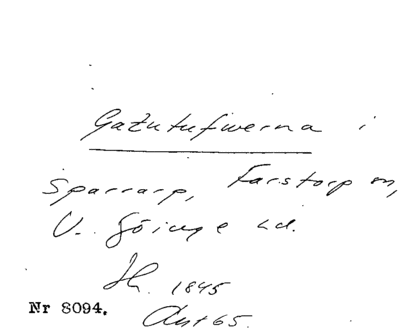 Gatutufwerna i
Sparrarp, Farstorp sn,
V. Göinge hd.
Sk. 1845
Nr 8094.
Ant 65.